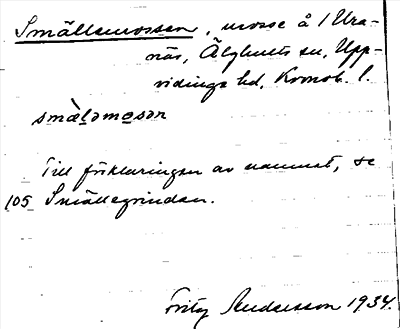 Smällemossen, mosse å 1 Ura-
näs, Älghults sn, Upp-
vidinge hd, Kronob. l.
smæ̀ləmo̱sən
Till förklaringen av namnet, se
105 Smällegrindan.
Fritz Andersson 1934.